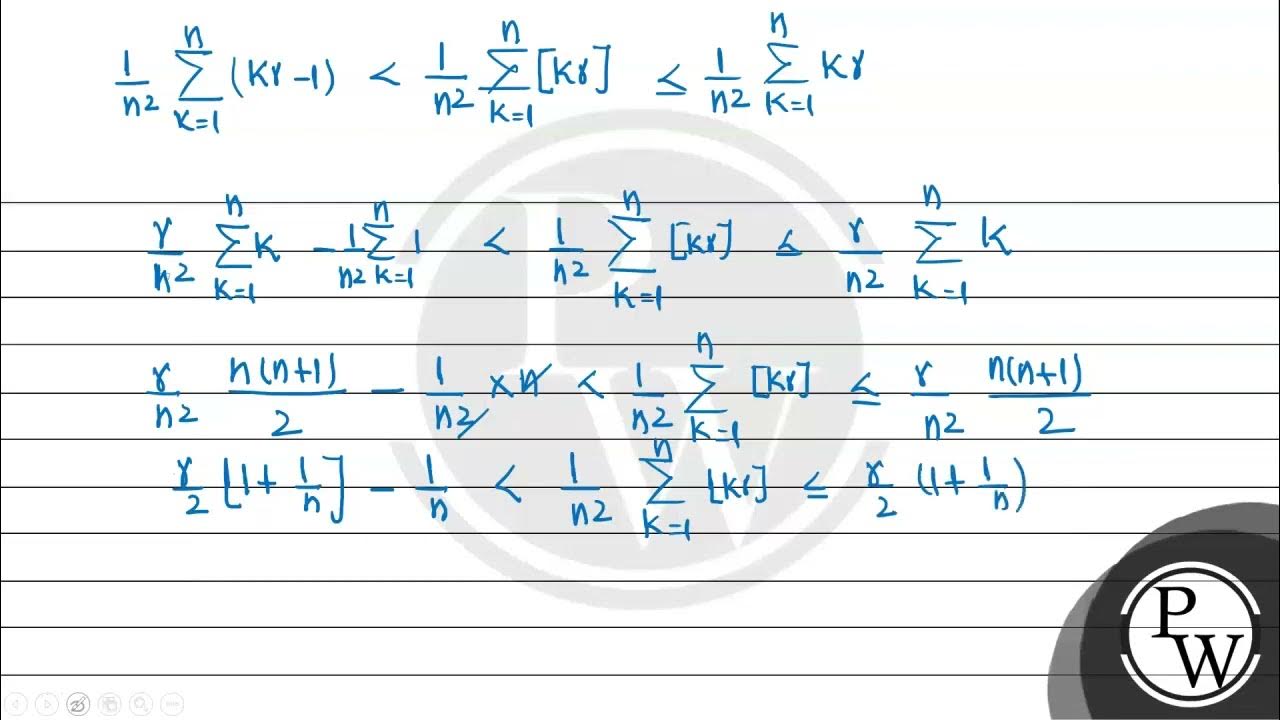 1/n² ∑_{k=1}^{n} (kr-1) < 1/n² ∑_{k=1}^{n} [kr] ≤ 1/n² ∑_{k=1}^{n} kr
r/n² ∑_{k=1}^{n} k - 1/n² ∑_{k=1}^{n} 1 < 1/n² ∑_{k=1}^{n} [kr] ≤ r/n² ∑_{k=1}^{n} k
r/n² n(n+1)/2 - 1/n² × n < 1/n² ∑_{k=1}^{n} [kr] ≤ r/n² n(n+1)/2
r/2 [1+1/n] - 1/n < 1/n² ∑_{k=1}^{n} [kr] ≤ r/2 (1+1/n)
PW
PW